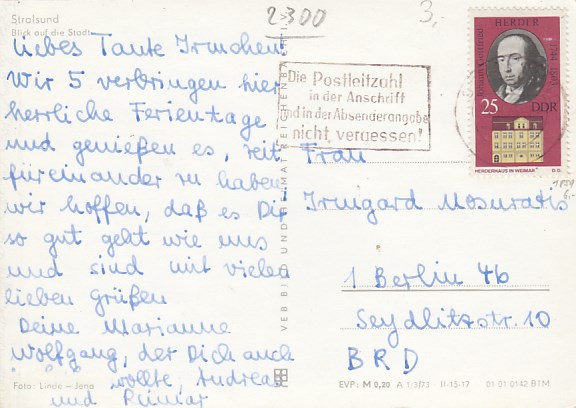 Stralsund
Blick auf die Stadt
2300
3,-
Liebes Tante Irmchen
Wir 5 verbringen hier
herrliche Ferientage
und genießen es, Zeit
füreinander zu haben
wir hoffen, daß es Dir
so gut geht wie uns
und sind mit vielen
lieben Grüßen
Deine Marianne
Wolfgang, der Dich auch
wollte, Andreas
und Reimar
Foto: Linde – Jena
VEB BILD UND HEIMAT REICHENBACH I. V.
Die Postleitzahl
in der Anschrift
und in der Absenderangabe
nicht vergessen!
JOHANN GOTTFRIED HERDER 1744 1803
25 DDR
HERDERHAUS IN WEIMAR
D. D.
6,-
Frau
Irmgard Mosuratis
1 Berlin 46
Seydlitzstr. 10
BRD
EVP: M 0,20 A 1/3/73 II-15-17 01 01 0142 BTM